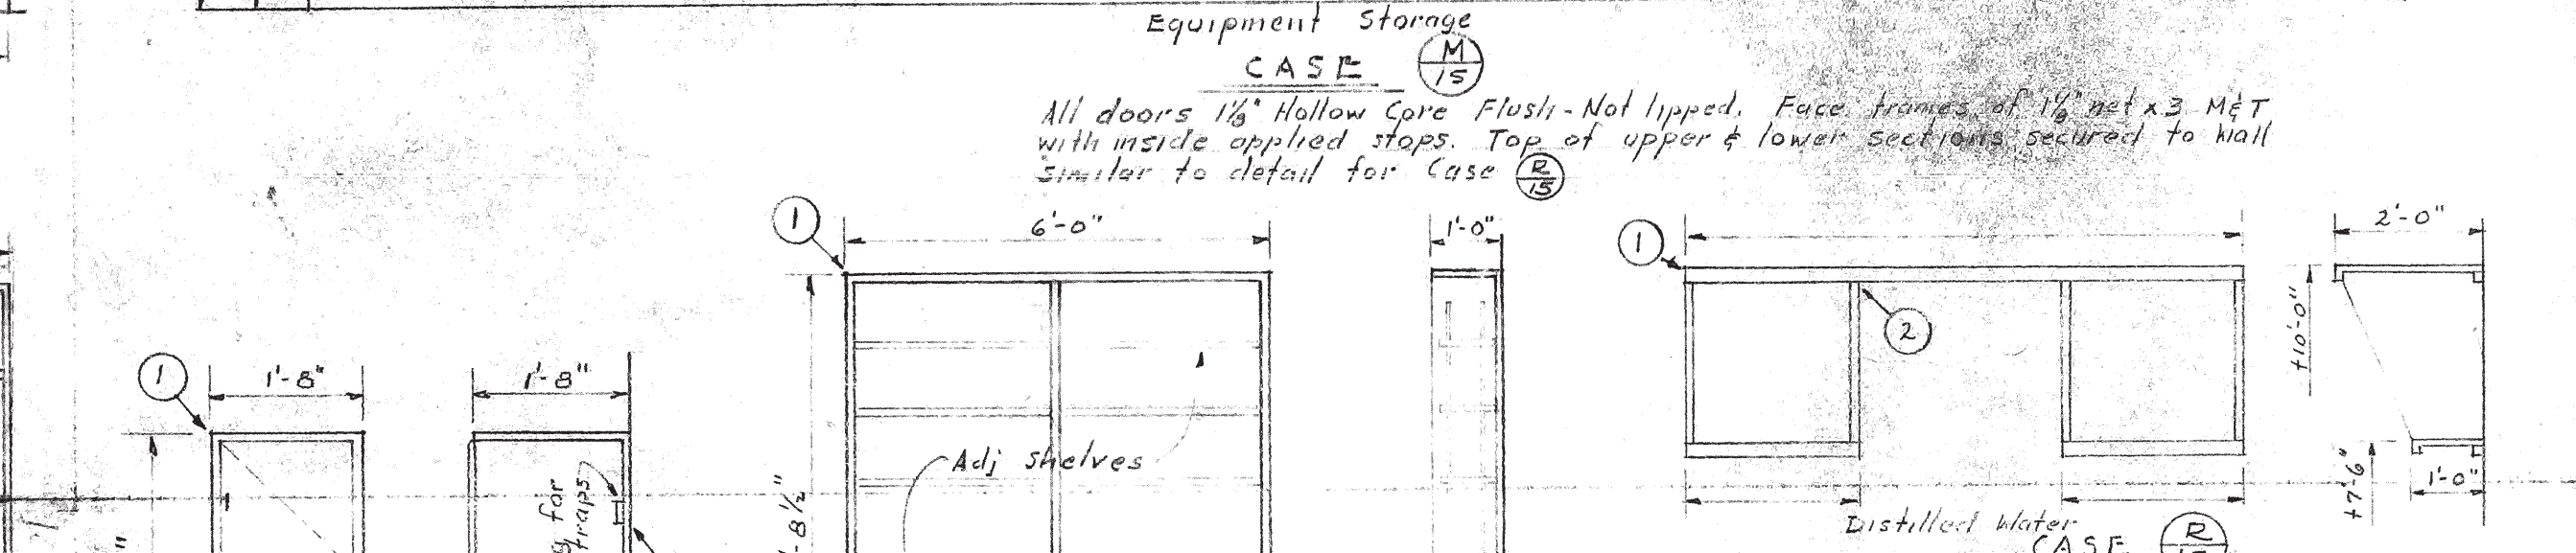 Equipment Storage
CASE M/15
All doors 1⅛" Hollow Core Flush - Not lipped. Face frames of 1⅛" net x 3 M&T
with inside applied stops. Top of upper & lower sections secured to wall
similar to detail for Case R/15
1
6'-0"
1'-0"
1
2'-0"
2
+10'-0"
1
1'-8"
1'-8"
Adj shelves
for
traps
-8½"
+7'-6"
1'-0"
Distilled Water
CASE R